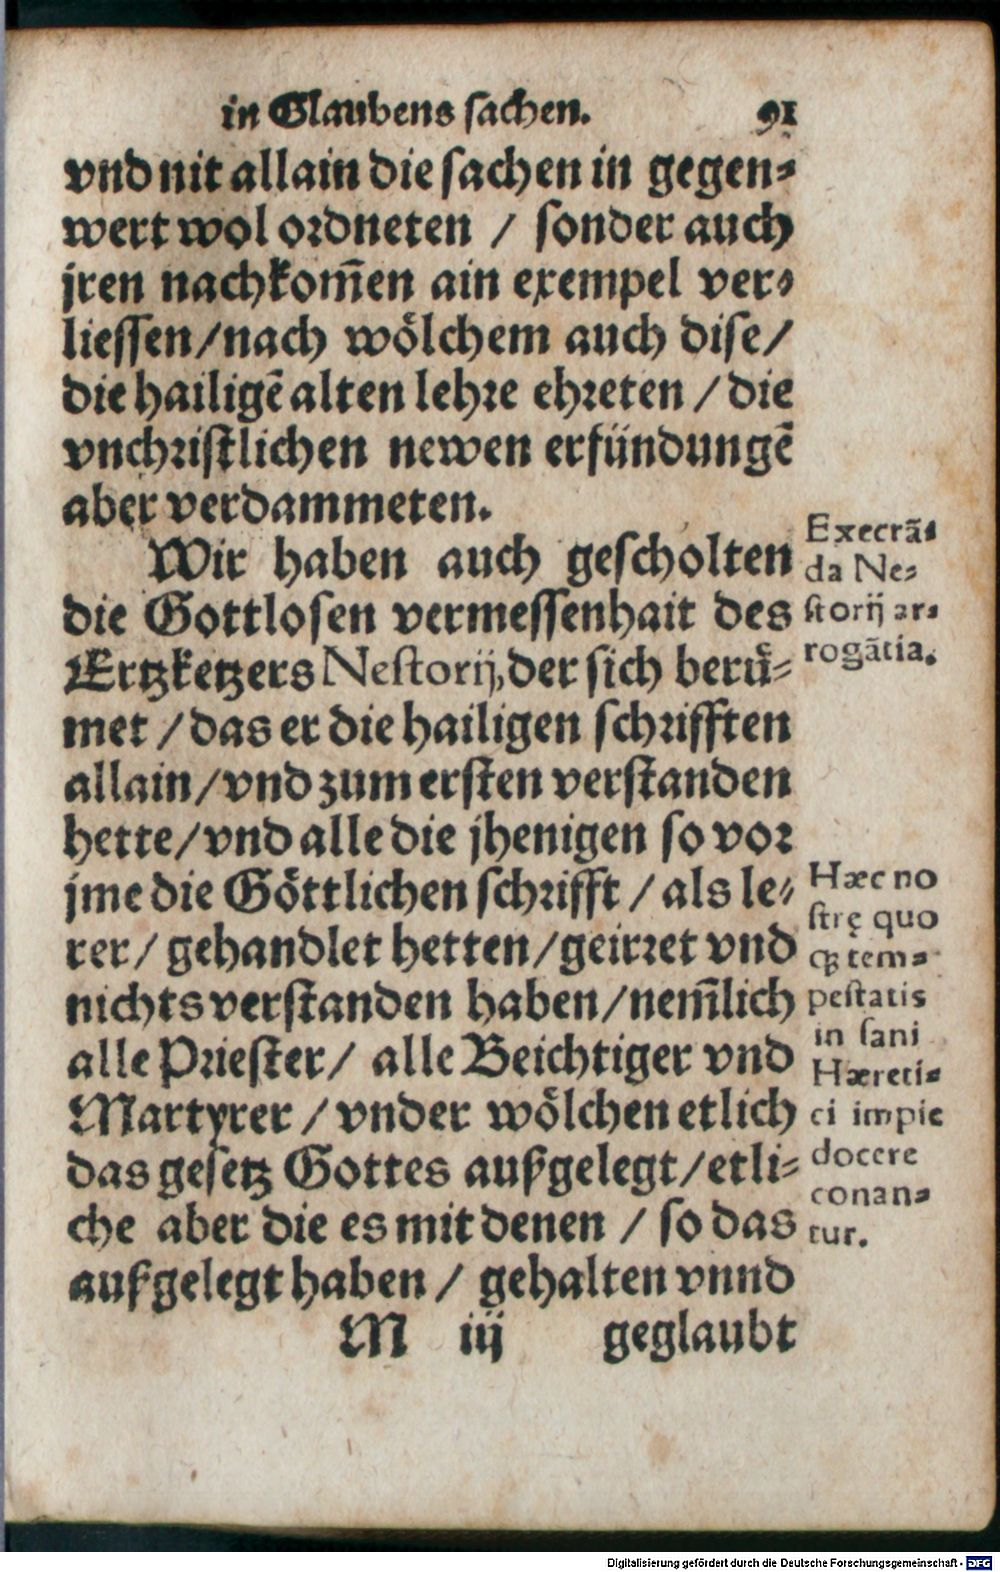 in Glaubens sachen. 91
vnd nit allain die sachen in gegen⸗
wert wol ordneten / sonder auch
jren nachkom̃en ain exempel ver⸗
liessen/nach woͤlchem auch dise/
die hailigẽ alten lehre ehreten / die
vnchristlichen newen erfündungẽ
aber verdammeten.
Wir haben auch gescholten
die Gottlosen vermessenhait des
Ertzketzers Nestorij, der sich beruͤ⸗
met / das er die hailigen schrifften
allain/vnd zum ersten verstanden
hette/vnd alle die jhenigen so vor
jme die Goͤttlichen schrifft / als le⸗
rer/ gehandlet hetten/geirret vnd
nichts verstanden haben/nem̃lich
alle Priester/ alle Beichtiger vnd
Martyrer / vnder woͤlchen etlich
das gesetz Gottes außgelegt/etli⸗
che aber die es mit denen / so das
außgelegt haben / gehalten vnnd
M iij geglaubt
Execrã⸗
da Ne⸗
storij ar⸗
rogãtia.
Hæc no
strę quo
qꝫ tem⸗
pestatis
in sani
Hæreti⸗
ci impie
docere
conan⸗
tur.
Digitalisierung gefördert durch die Deutsche Forschungsgemeinschaft - DFG